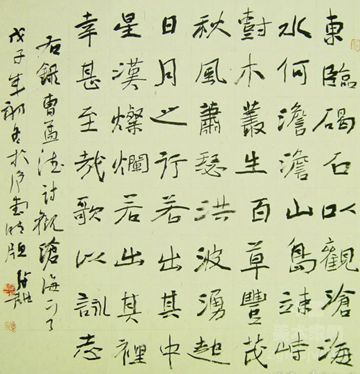 東臨碣石以觀滄海
水何澹澹山島竦峙
樹木叢生百草豐茂
秋風蕭瑟洪波湧起
日月之行若出其中
星漢燦爛若出其裡
幸甚至哉歌以詠志
右錄曹孟德詩觀滄海
戊子年初冬於